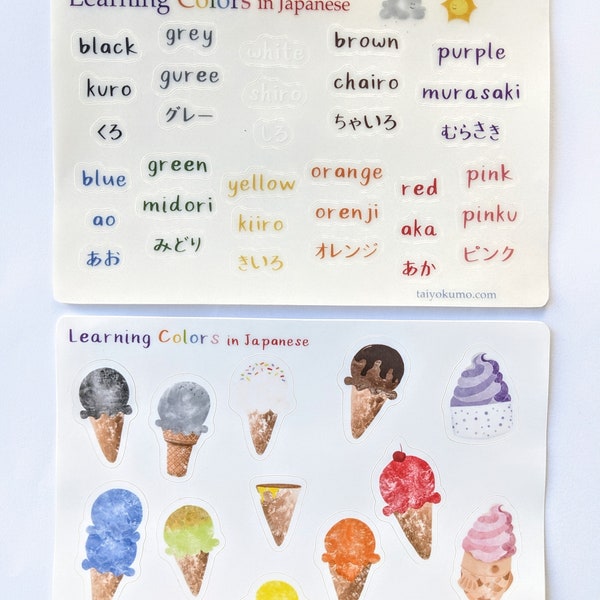 Learning Colors in Japanese
black
kuro
くろ
grey
guree
グレー
white
shiro
しろ
brown
chairo
ちゃいろ
purple
murasaki
むらさき
blue
ao
あお
green
midori
みどり
yellow
kiiro
きいろ
orange
orenji
オレンジ
red
aka
あか
pink
pinku
ピンク
taiyokumo.com
Learning Colors in Japanese